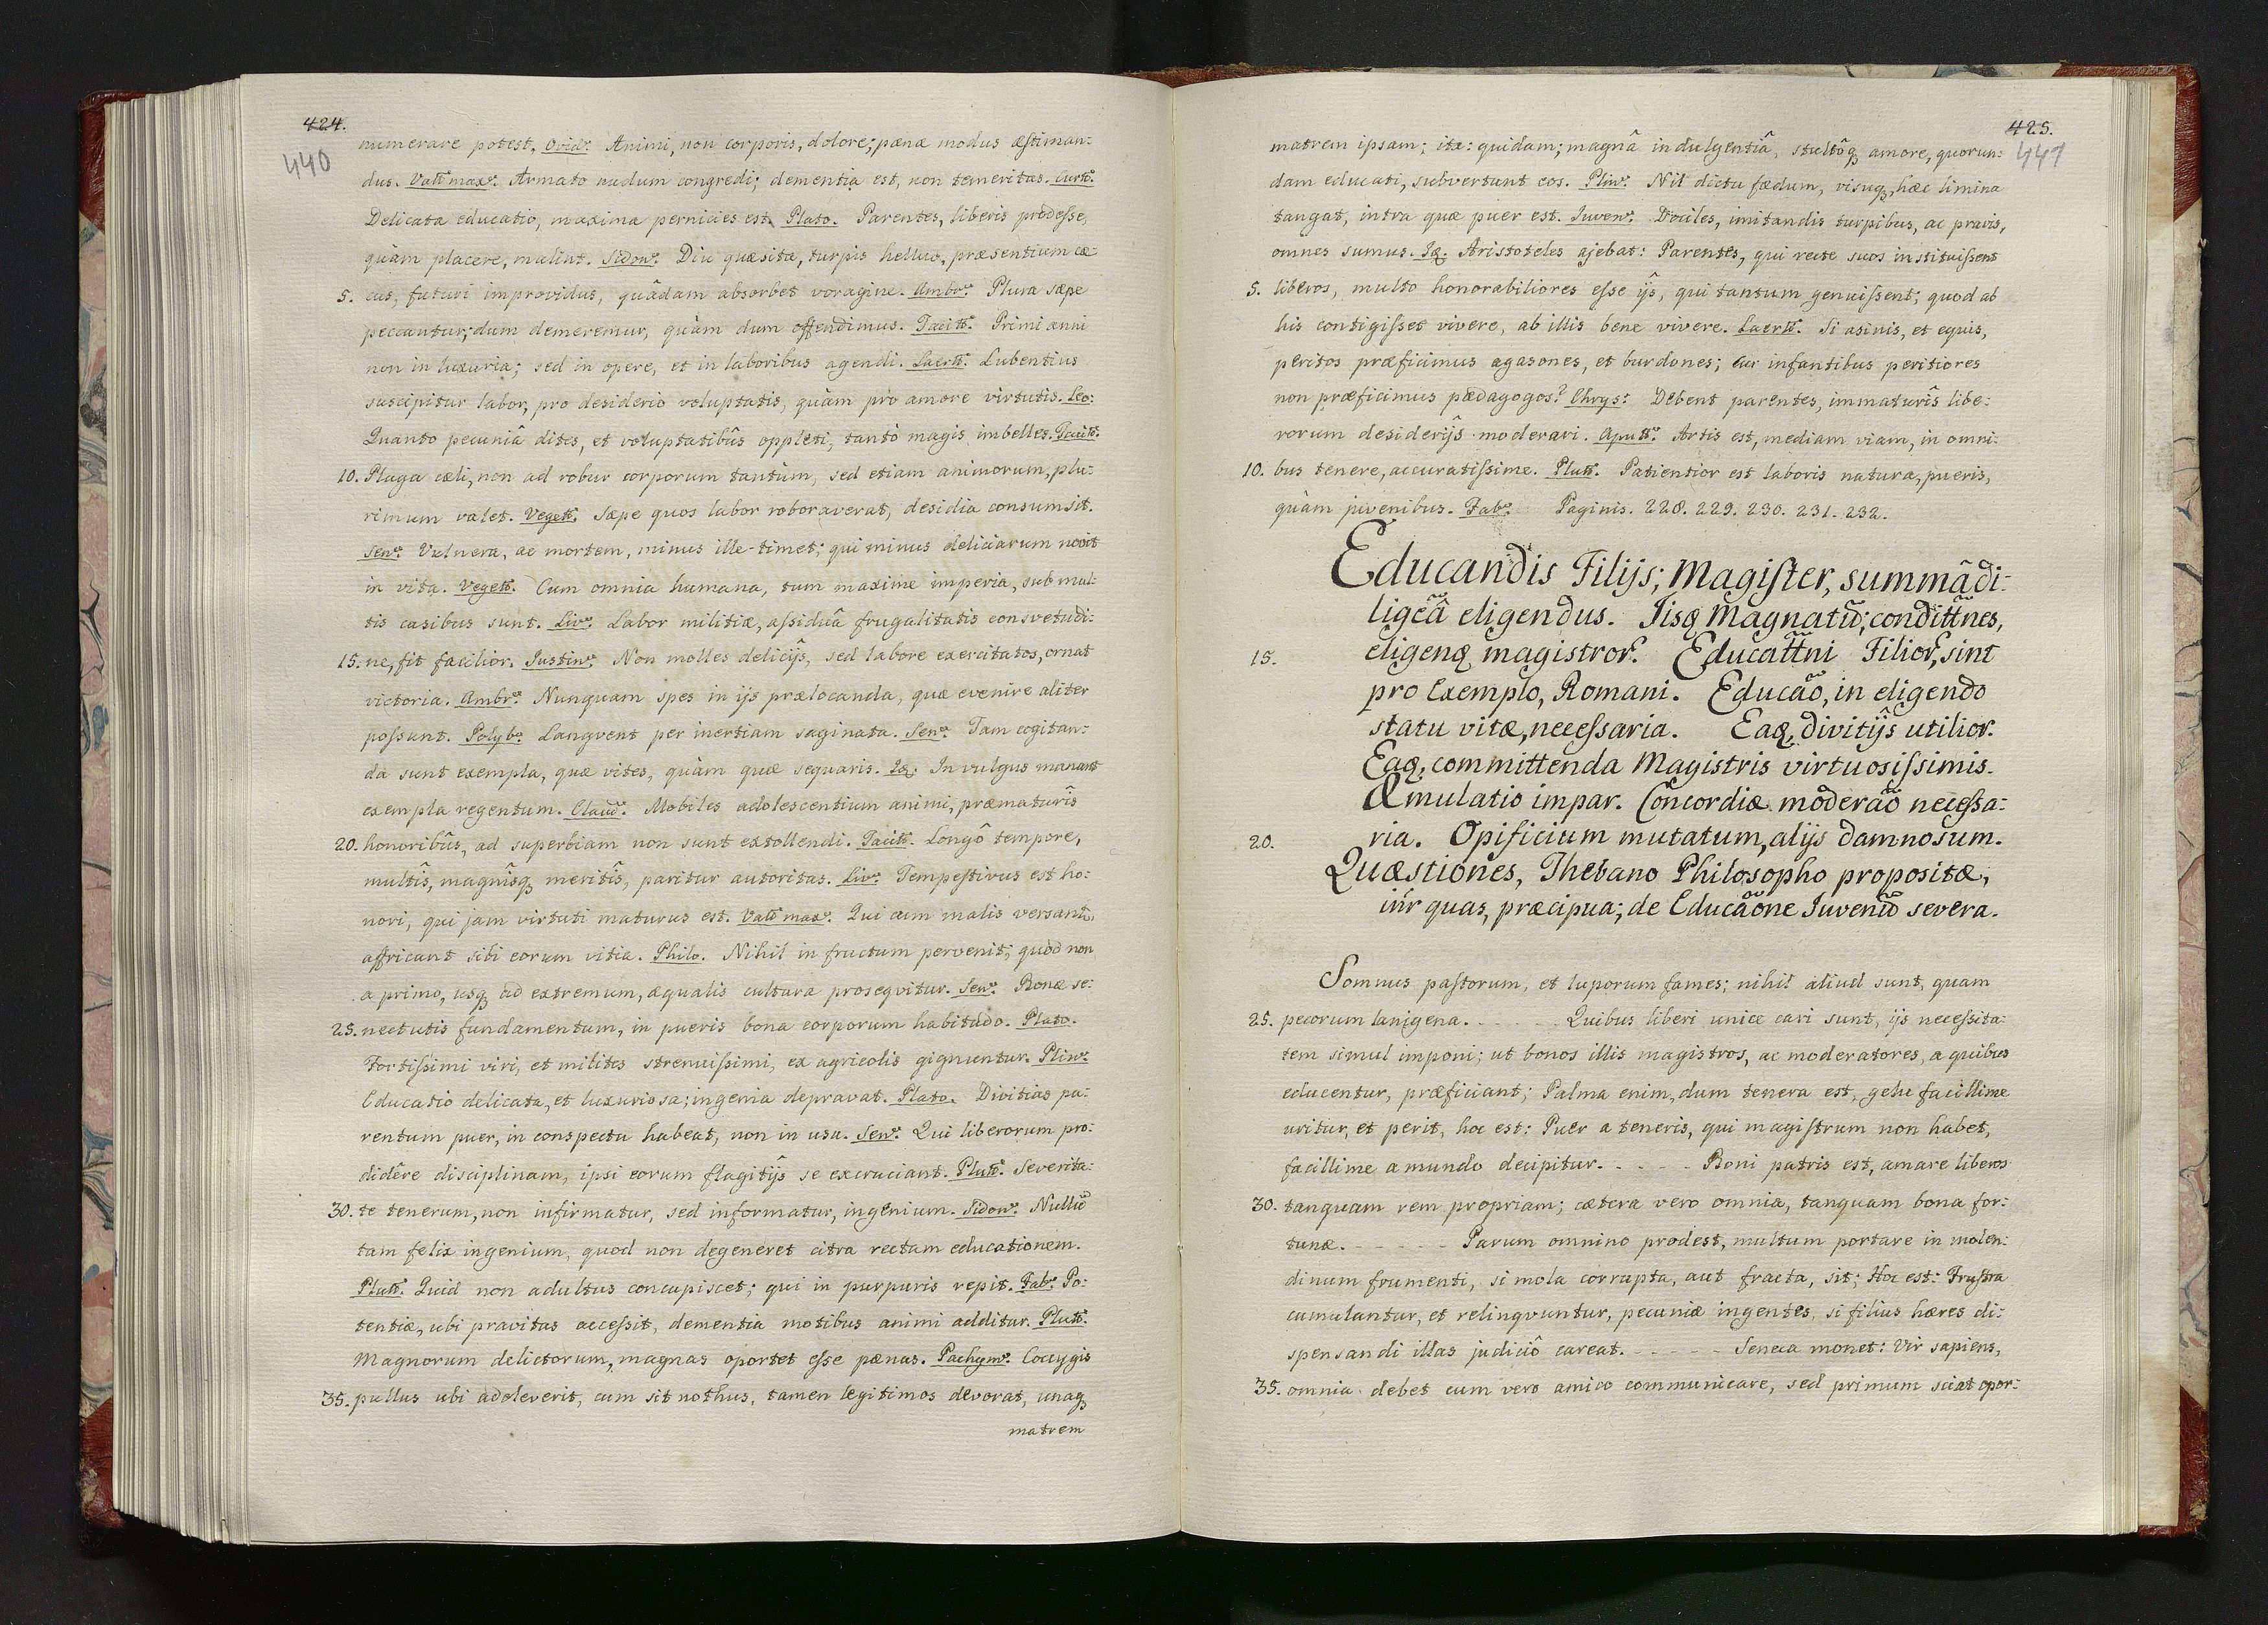 424.
440
numerare potest. Ovid: Animi, non corporis, dolore; pænæ modus æstiman:
dus. Vall max: Armato nudum congredi; dementia est, non temeritas. Curtt:
Delicata educatio, maxima pernicies est. Plato. Parentes, liberis prodesse,
quàm placere, malint. Sidon: Diu quæsita, turpis helluo, præsentium cæ:
5. cus, futuri improvidus, quâdam absorbet voragine. Ambr: Plura sæpe
peccantur; dum demeremur, quàm dum offendimus. Tacitt: Primi anni
non in luxuria; sed in opere, et in laboribus agendi. Laertt: Lubentius
suscipitur labor, pro desiderio voluptatis, quàm pro amore virtutis. Leo:
Quanto pecuniâ dites, et voluptatibûs oppleti, tantò magis imbelles. Tacitt:
10. Plaga cæli, non ad robur corporum tantùm, sed etiam animorum, plu:
rimum valet. Vegett: Sæpe quos labor roboraverat, desidia consumsit.
Sen: Vulnera, ac mortem, minus ille timet; qui minus deliciarum novit
in vita. Vegett: Cum omnia humana, tum maxime imperia, sub mul:
tis casibus sunt. Liv: Labor militiæ, assiduâ frugalitatis consvetudi:
15. ne, fit facilior. Justin: Non molles deliciîs, sed labore exercitatos, ornat
victoria. Ambr: Nunquam spes in ijs prælocanda, quæ evenire aliter
possunt. Polyb: Langvent per inertiam saginata. Sen: Tam cogitan:
da sunt exempla, quæ vites, quàm quæ sequaris. Iq. In vulgus manant
exempla regentum. Claud: Mobiles adolescentium animi, præmaturîs
20. honoribûs, ad superbiam non sunt extollendi. Tacitt: Longô tempore,
multîs, magnîsq, meritîs, paritur autoritas. Liv: Tempestivus est ho:
nori, qui jam virtuti maturus est. Vall max: Qui cum malis versantr,
affricant sibi eorum vitia. Philo. Nihil in fructum pervenit; quòd non
a primo, usq, ad extremum, æqualis cultura proseqvitur. Sen: Bonæ se:
25. nectutis fundamentum, in pueris bona corporum habitudo. Plato.
Fortissimi viri, et milites strenuissimi, ex agricolis gignuntur. Plin:
Educatio delicata, et luxuriosa; ingenia depravat. Plato. Divitias pa:
rentum puer, in conspectu habeat, non in usu. Sen: Qui liberorum pro:
didêre disciplinam, ipsi eorum flagitijs se excruciant. Plutt: Severita:
30. te tenerum, non infirmatur, sed informatur, ingenium. Sidon: Nullũ
tam felix ingenium, quod non degeneret citra rectam educationem.
Plutt: Quid non adultus concupiscet; qui in purpuris repit. Fab: Po:
tentiæ, ubi pravitas accessit, dementia motibus animi additur. Plutt:
Magnorum delictorum, magnas oportet esse pænas. Pachym: Coccygis
35. pullus ubi adoleverit, cum sit nothus, tamen legitimos devorat, unaq,
matrem
425.
441
matrem ipsam; ita: quidam; magnâ indulgentiâ, stultôq, amore, quorun:
dam educati, subvertunt eos. Plin: Nil dictu fædum, visuq, hæc limina
tangat, intra quæ puer est. Juven: Dociles, imitandis turpibus, ac pravis,
omnes sumus. Iq. Aristoteles ajebat: Parentes, qui recte suos instituissent
5. liberos, multo honorabiliores esse ijs, qui tantum genuissent; quod ab
his contigisset vivere, ab illis bene vivere. Laertt: Si asinis, et equis,
peritos præficimus agasones, et burdones; cur infantibus peritiores
non præficimus pædagogos? Chrys: Debent parentes, immaturîs libe:
rorum desiderijs moderari. Apull: Artis est, mediam viam, in omni:
10. bus tenere, accuratissime. Plutt: Patientior est laboris natura, pueris,
quàm juvenibus. Fab: Paginis. 228. 229. 230. 231. 232.
Educandis Filijs; Magister, summâ di:
ligẽâ eligendus. Iisq Magnatũ; condittnes,
15. eligenq magistror. Educattni Filior, sint
pro Exemplo, Romani. Educão, in eligendo
statu vitæ, necessaria. Eaq, divitijs utilior.
Eaq, committenda Magistris virtuosissimis.
Æmulatio impar. Concordiæ moderão necessa:
20. ria. Opificium mutatum, alijs damnosum.
Quæstiones, Thebano Philosopho propositæ,
iñr quas, præcipua; de Educãone Juvenũ severa.
Somnus pastorum, et luporum fames; nihil aliud sunt, quam
25. pecorum lanigena. - - - - - Quibus liberi unice cari sunt, ijs necessita:
tem simul imponi; ut bonos illis magistros, ac moderatores, a quibus
educentur, præficiant; Palma enim, dum tenera est, gelu facillime
uritur, et perit, hoc est: Puer a teneris, qui magistrum non habet,
facillime a mundo decipitur. - - - - - Boni patris est, amare liberos
30. tanquam rem propriam; cætera vero omnia, tanquam bona for:
tunæ. - - - - - Parum omnino prodest, multum portare in molen:
dinum frumenti, si mola corrupta, aut fracta, sit; Hoc est: Frustra
cumulantur, et relinqvuntur, pecuniæ ingentes, si filius hæres di:
spensandi illas judiciô careat. - - - - - Seneca monet: Vir sapiens,
35. omnia debet cum vero amico communicare, sed primum sciat opor: